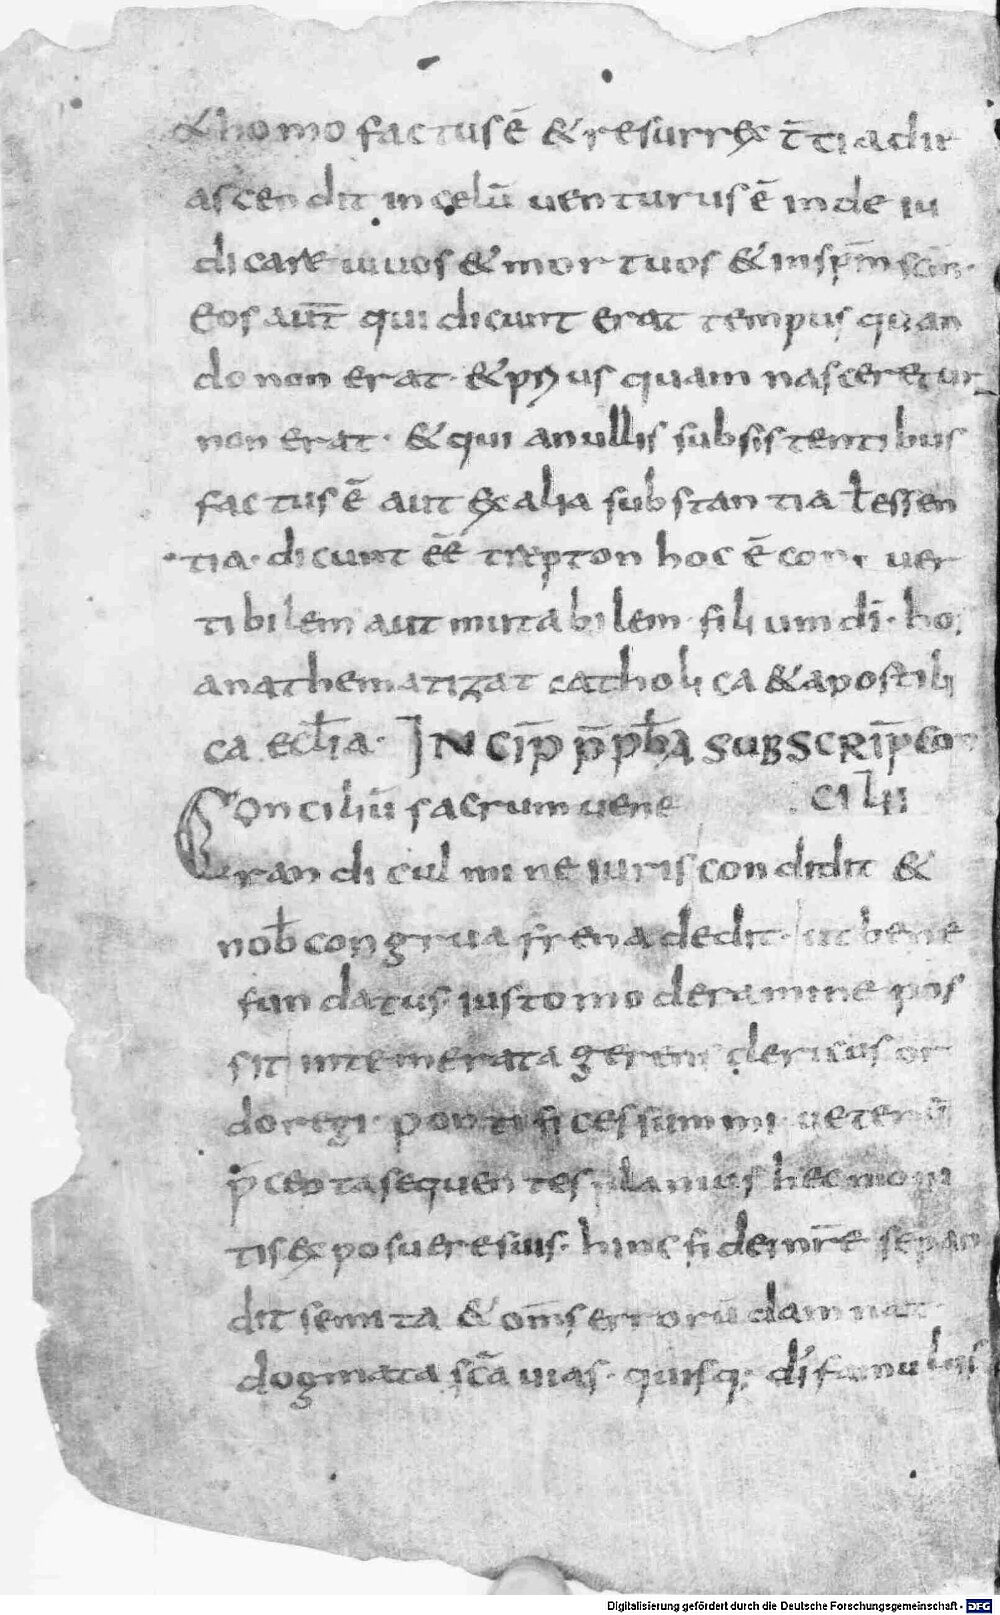 & homo factus ē & resurrex̄ t̄tia die
ascendit in celū uenturus ē inde iu
dicare uiuos & mortuos & in sp̄m sc̄m·
Eos aut̄ qui dicunt erat tempus quan
do non erat· & prius quam nasceretur
non erat· & qui a nullis subsistentibus
factus ē aut ex alia substantia ł essen
tia· dicunt ēē trepton hoc ē con uer
tibilem aut mutabilem filium dī· hos
anathematizat catholica & apostili
ca ecłia· INCIP̄ P̄PħA SUBSCRIP̄ CON
CILII
Conciliū sacrum uene
randi culmine iuris condidit &
noƀ congrua frena dedit· ut bene
fundatus iusto moderamine pos
sit intemerata gerens clericus or
do regi· pontifices summi ueterū
p̄cepta sequentes planius hec moni
tis exposuere suis· hinc fidei nr̄e se pan
dit semita & om̄s errorū damnat
dogmata sc̄a uias· quisq· dī famulus
Digitalisierung gefördert durch die Deutsche Forschungsgemeinschaft - DFG